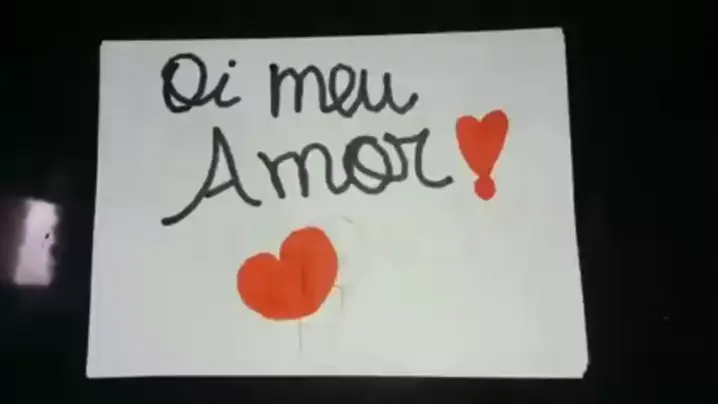 Oi meu
Amor!